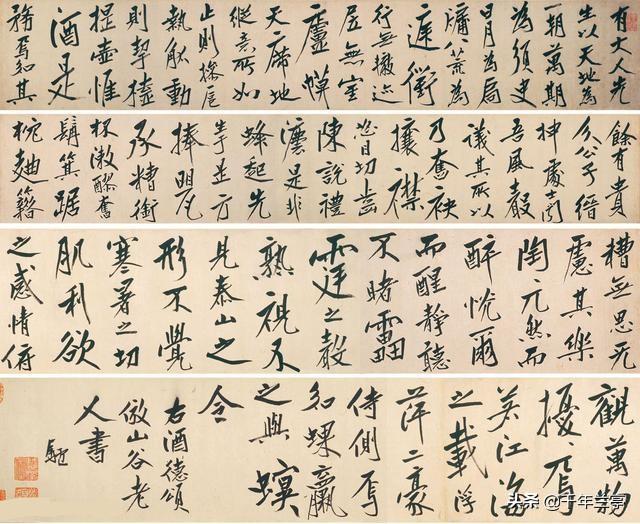 有大人先
生以天地為
一朝萬期
為須臾
日月為扃
牖八荒為
庭衢
行無轍迹
居無室
廬幕
天席地
縱意所如
止則操卮
執觚動
則挈榼
提壺惟
酒是
務焉知其
餘有貴
介公子縉
紳處士聞
吾風聲
議其所以
乃奮袂
攘襟
怒目切齒
陳說禮
灋是非
蜂起先
生于是方
捧罌
承糟銜
杯漱醪奮
髯箕踞
枕麴籍
糟無思无
慮其樂
陶兀然而
醉怳爾
而醒靜聽
不睹雷
霆之聲
熟視不
見泰山之
形不覺
寒暑之切
肌利欲
之感情俯
觀萬物
擾〻焉
若江海
之載浮
萍二豪
侍側焉
如蜾蠃
之與螟
令
右酒德頌
倣山谷老
人書
头条 @千年兰亭